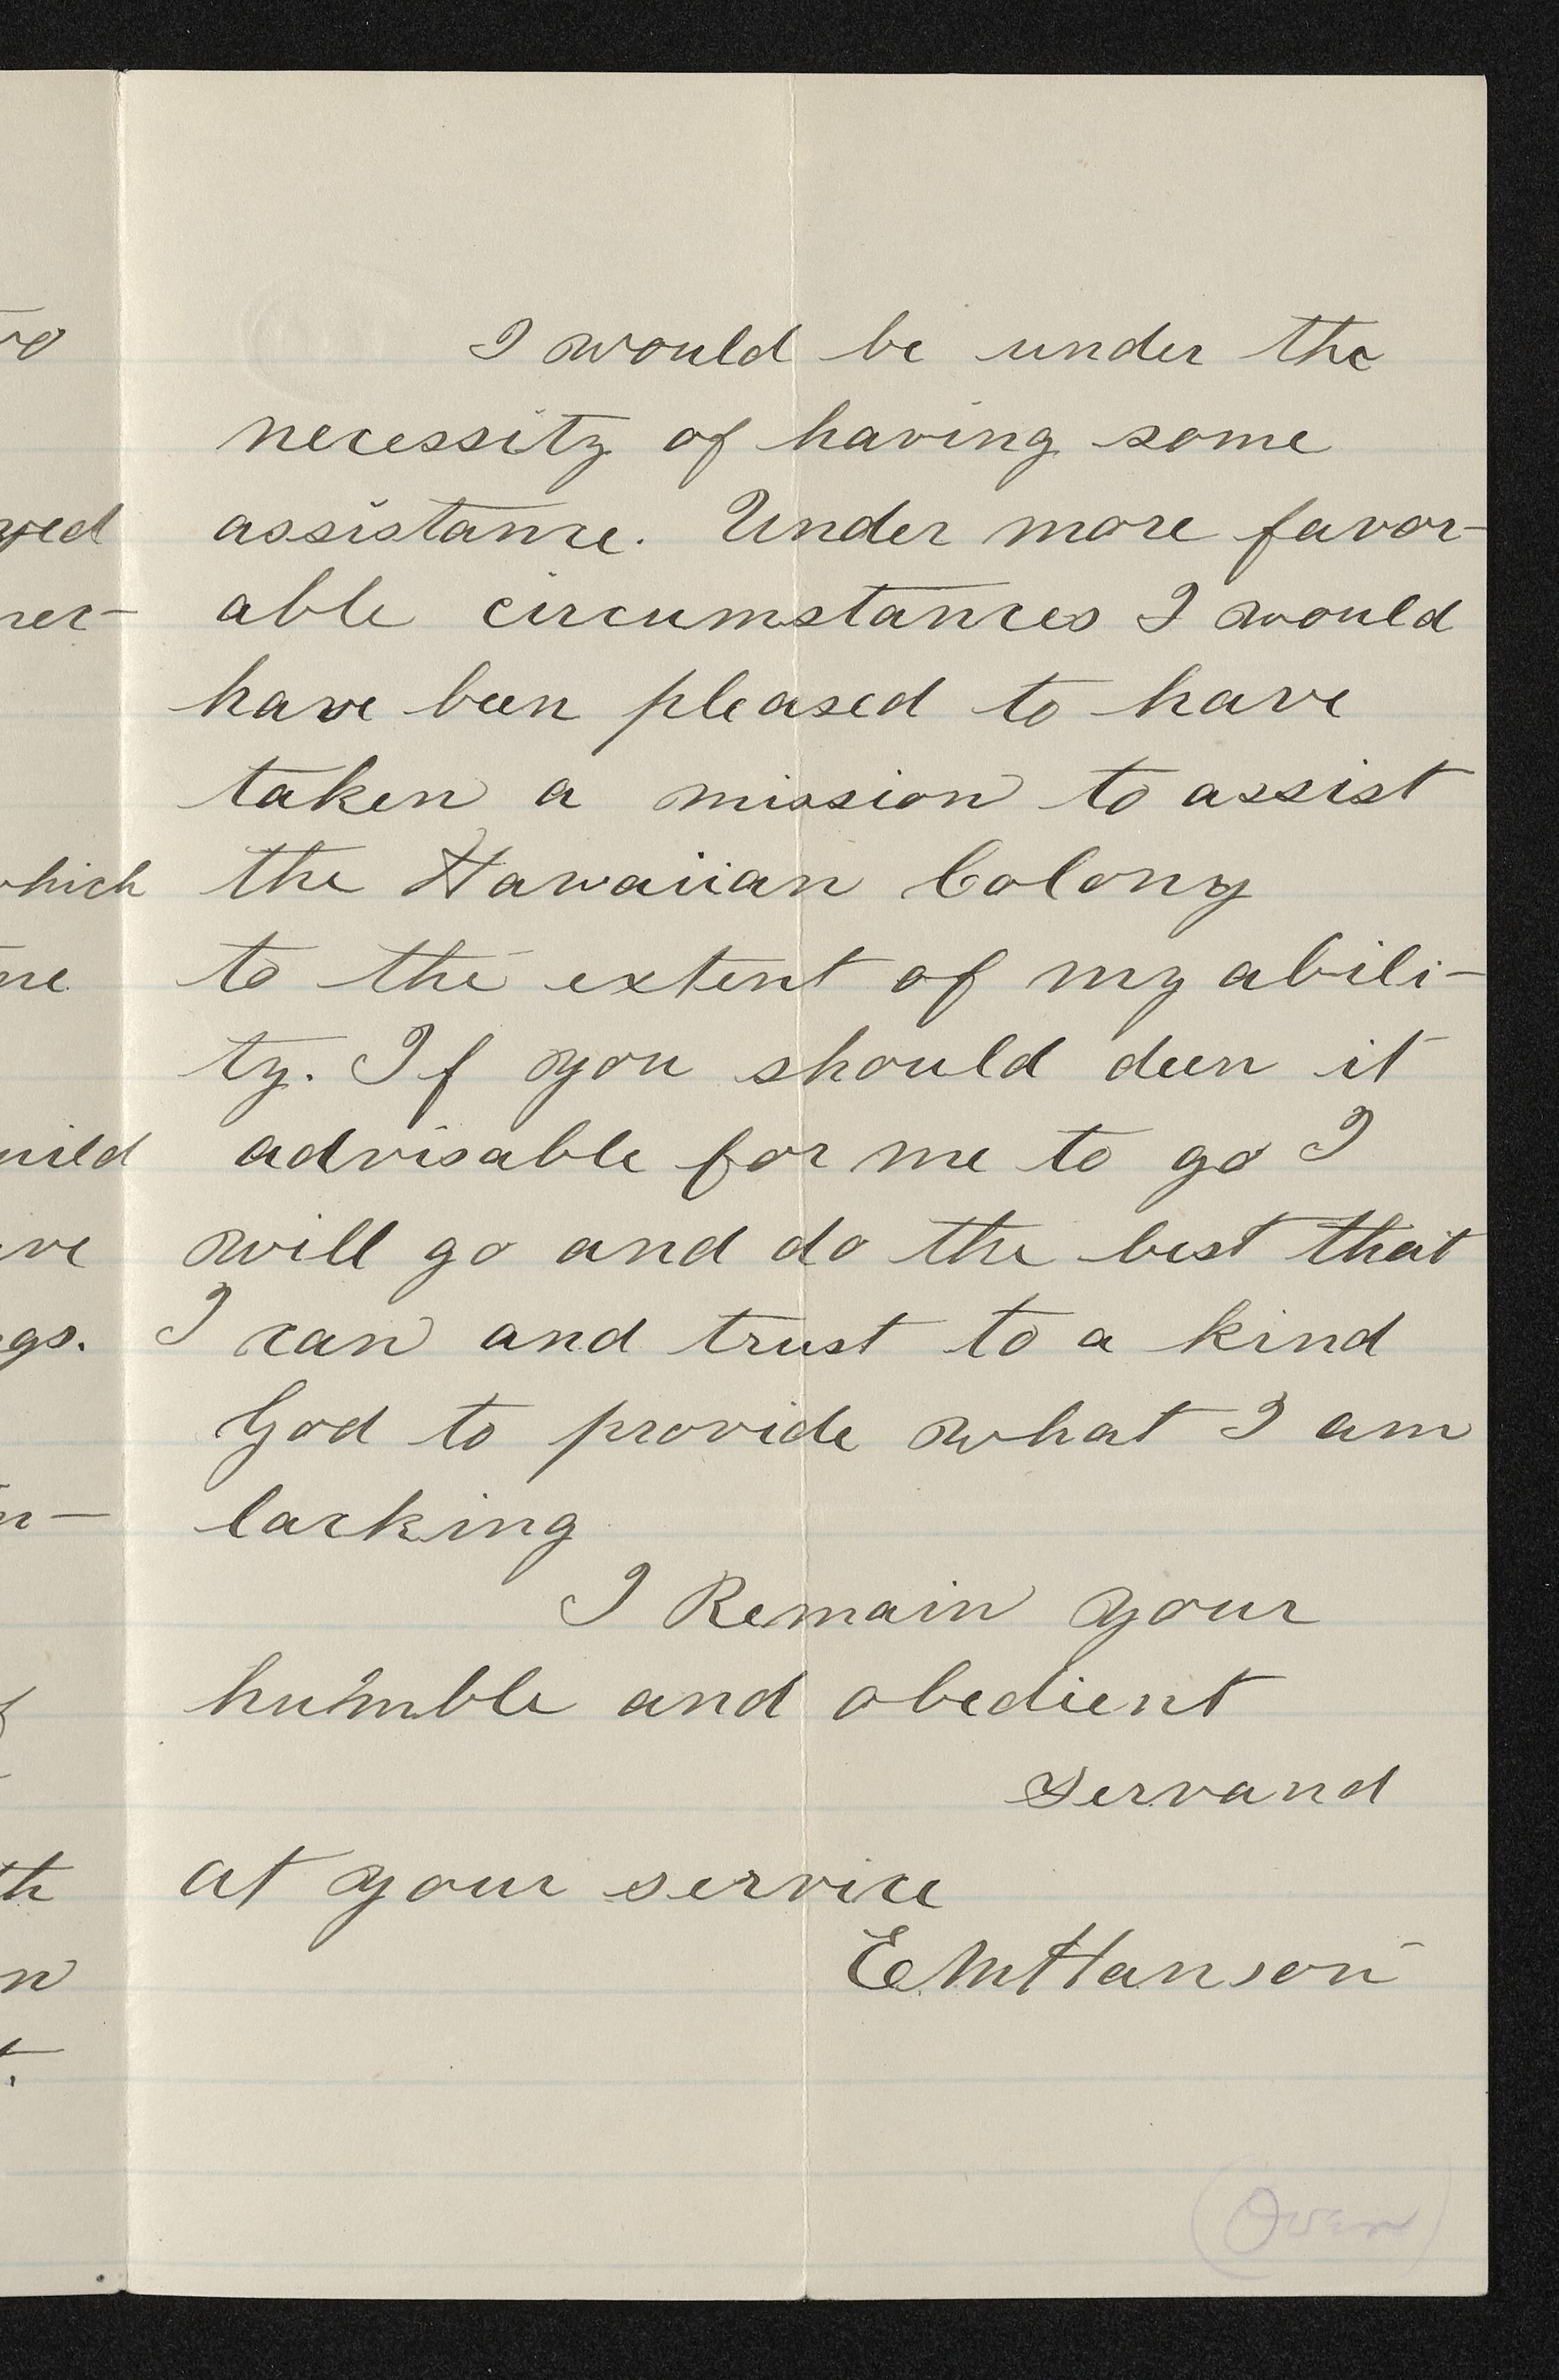 I would be under the
necessity of having some
assistance. Under more favor-
able circumstances I would
have been pleased to have
taken a mission to assist
the Hawaiian Colony
to the extent of my abili-
ty. If you should deen it
advisable for me to go I
will go and do the best that
I can and trust to a kind
God to provide what I am
lacking
I Remain your
humble and obedient
servand
at your service
E M Hanson
(Over)